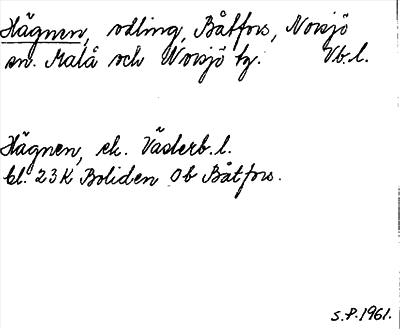 Hägnen, odling, Båtfors, Norsjö
sn. Malå och Norsjö tg. Vb.l.
Hägnen, ek. Västerb.l.
bl. 23K Boliden Ob Båtfors.
S.P.1961.